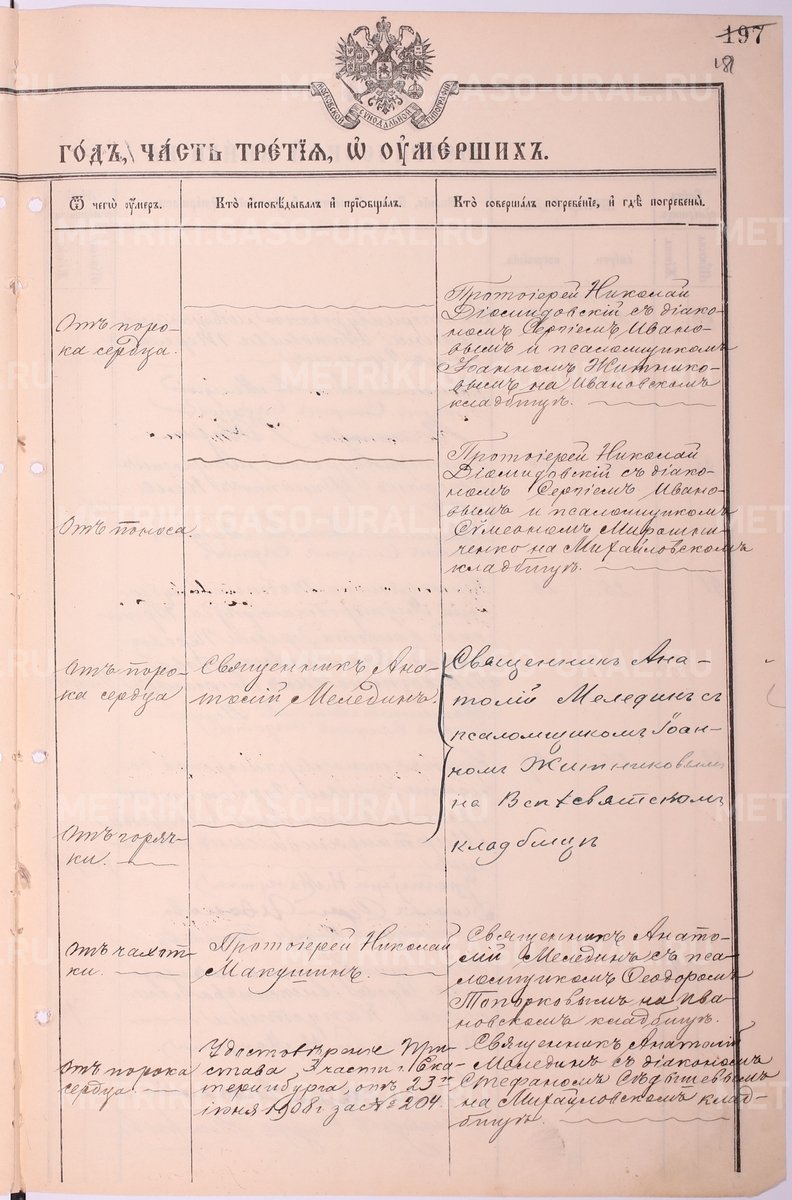 197
181
МОСКОВСКОЙ СѴНОДАЛЬНОЙ ТИПОГРАФІИ
ГОДЪ, ЧАСТЬ ТРЕТІЯ, Ѡ ОУМЕРШИХЪ.
Ѿ чегѡ оумеръ.
Кто исповѣдывалъ и пріобщалъ.
Кто совершалъ погребеніе, и гдѣ погребены.
Отъ поро-
ка сердца.
Протоіерей Николай
Діомидовскій съ діако-
номъ Сергіемъ Ивано-
вымъ и псаломщикомъ
Іоанномъ Житнико-
вымъ на Ивановскомъ
кладбищѣ.
Отъ поноса.
Протоіерей Николай
Діомидовскій съ діако-
номъ Сергіемъ Ивано-
вымъ и псаломщикомъ
Сѵмеономъ Мирошни-
ченко на Михайловскомъ
кладбищѣ.
Отъ поро-
ка сердца
Священникъ Ана-
толій Мелединъ.
Священникъ Ана-
толій Мелединъ съ
псаломщикомъ Іоан-
номъ Житниковымъ
на Всѣхсвятскомъ
кладбищѣ
Отъ горяч-
ки.
Отъ чахот-
ки.
Протоіерей Николай
Макушинъ.
Священникъ Анато-
лій Мелединъ съ пса-
ломщикомъ Ѳеодоромъ
Топорковымъ на Ива-
новскомъ кладбищѣ.
Отъ порока
сердца.
Удостовѣреніе При-
става 3 части г. Ека-
теринбурга отъ 23го
іюня 1908 г за № 204
Священникъ Анатолій
Мелединъ съ діакономъ
Стефаномъ Сѣдышевымъ
на Михайловскомъ клад-
бищѣ.
METRIKI.GASO-URAL.RU